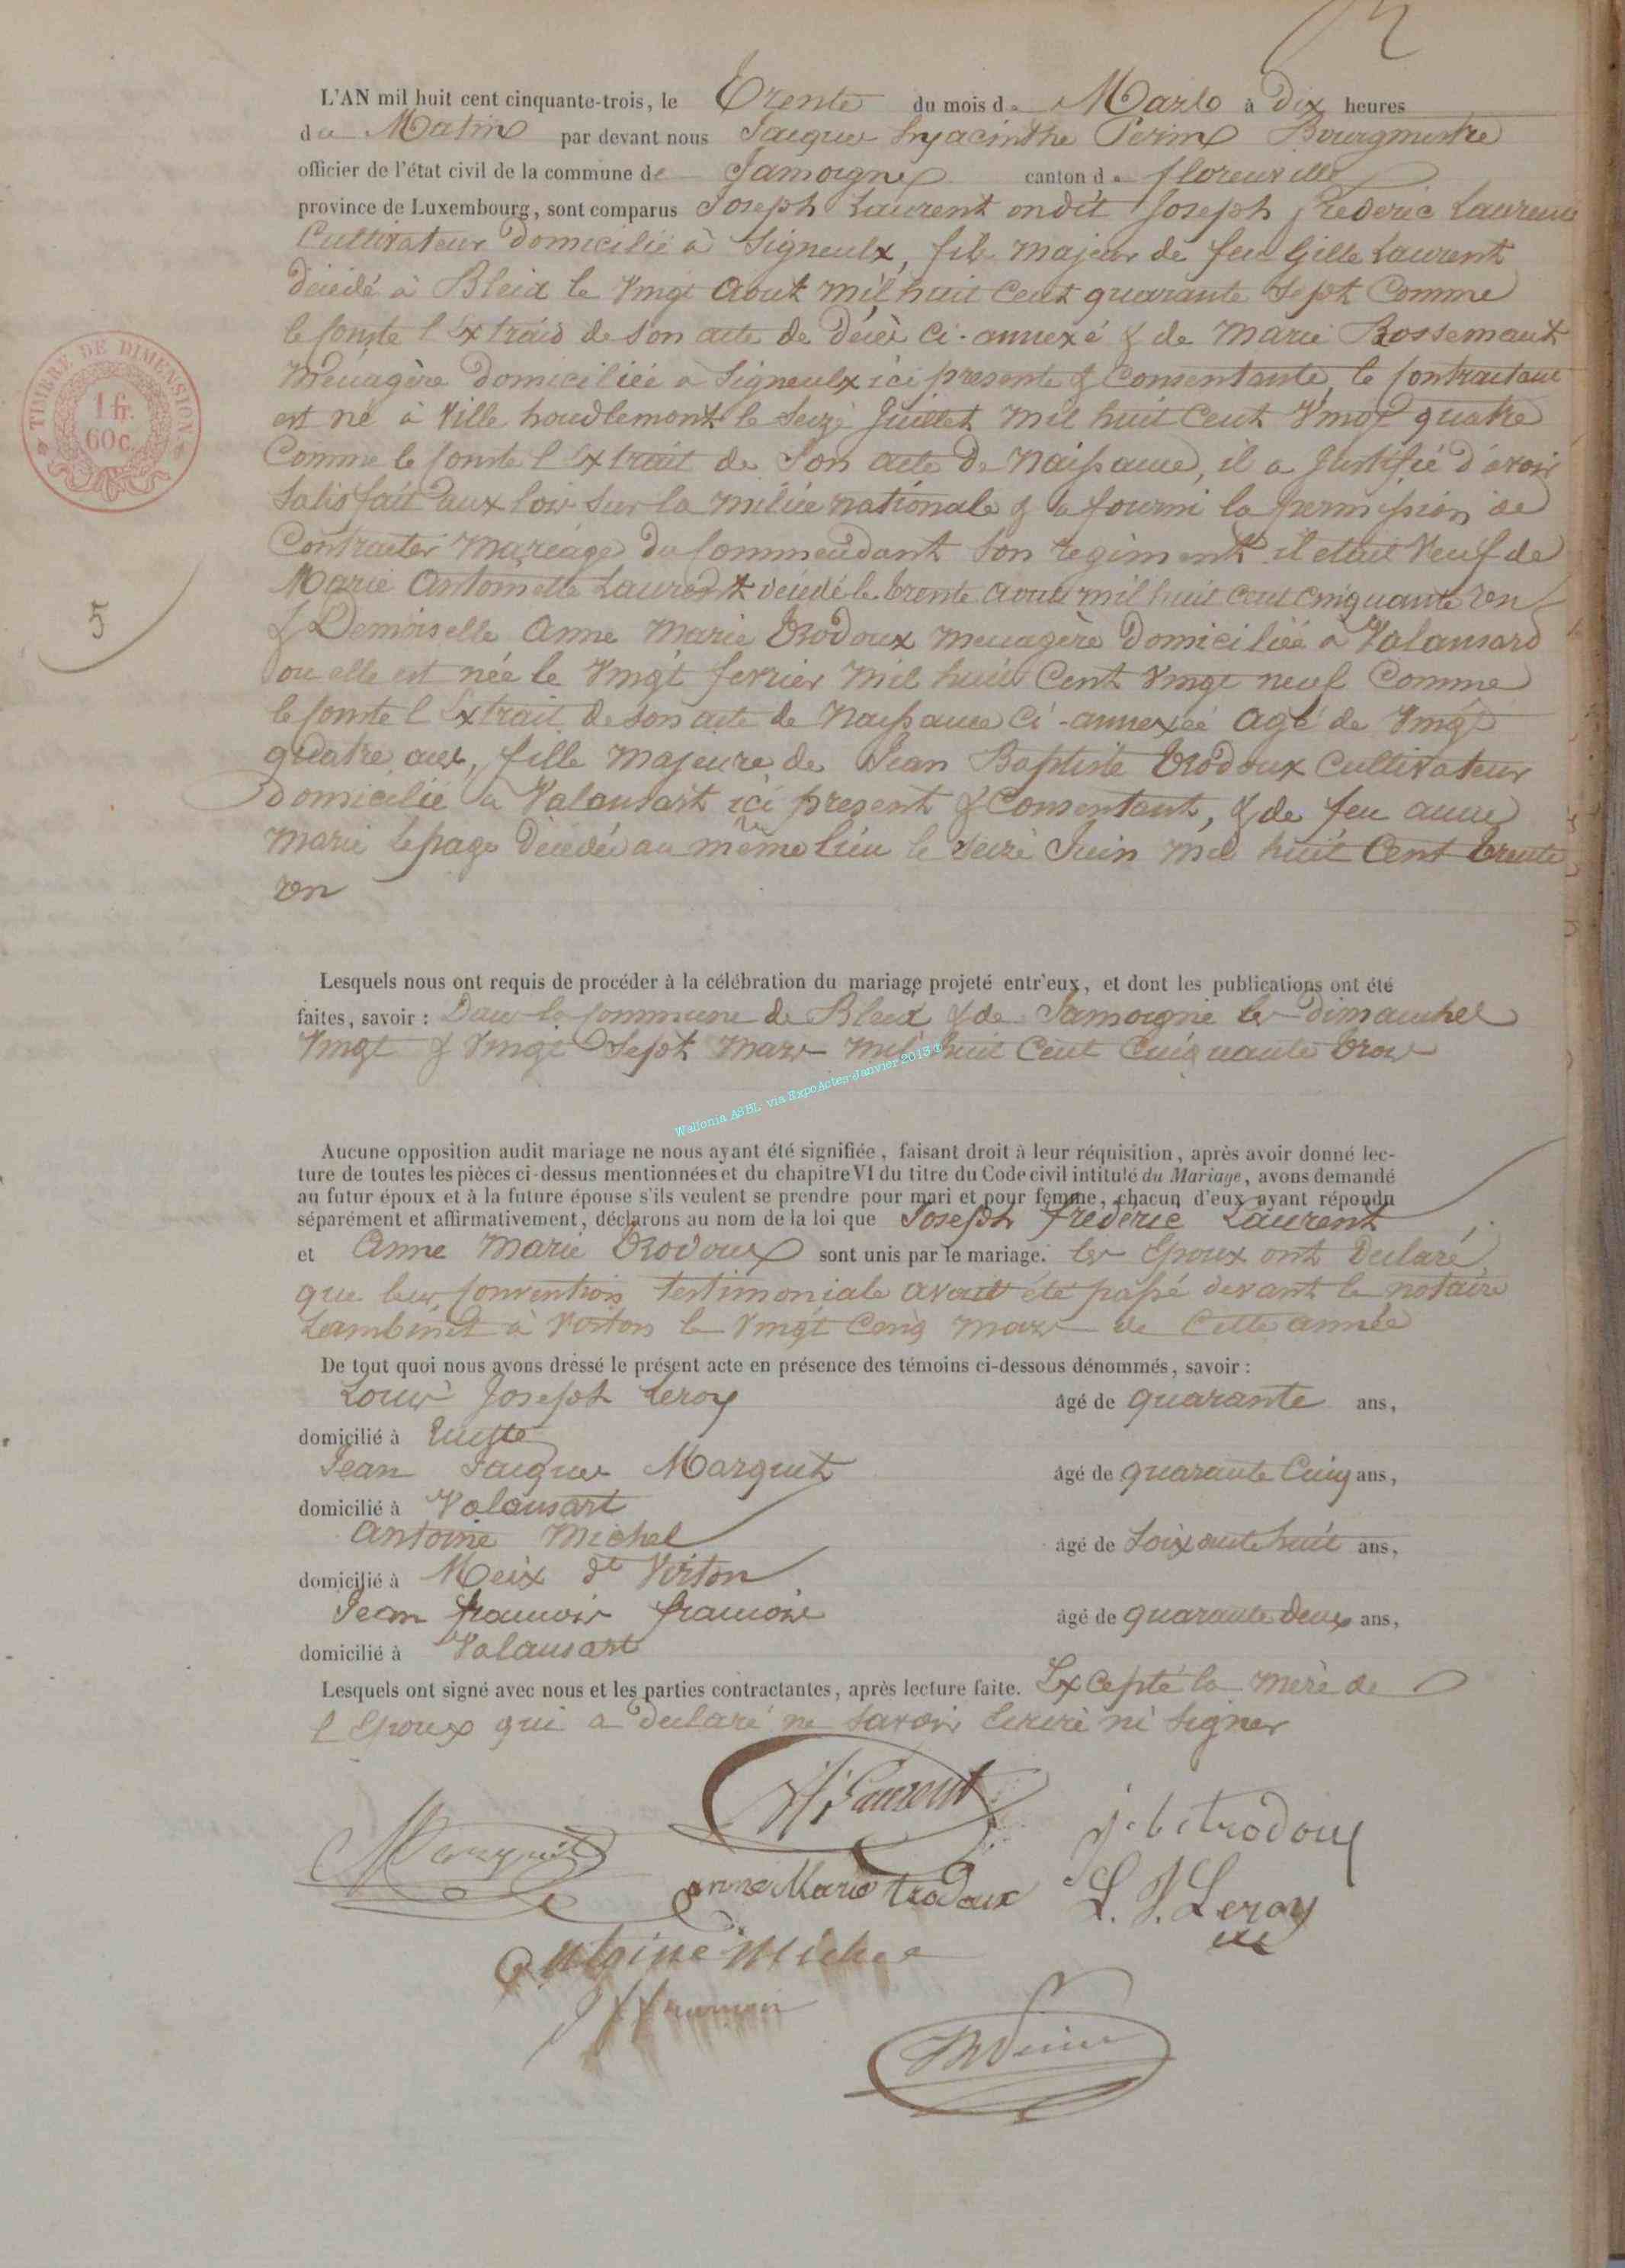 L'AN mil huit cent cinquante-trois, le Trente du mois de Mars à Dix heures
du Matin par devant nous Jacques hyacinthe Perin Bourgmestre
officier de l'état civil de la commune de Jamoigne canton de florenville
province de Luxembourg, sont comparus Joseph Laurent ondit Joseph frederic Laurent
Cultivateur Domicilié à Signeulx, fils majeur de feu Gille Laurent
Décédé à Bleid le Vingt Aout mil huit Cent quarante Sept Comme
le Conste l'Extrais de son acte de Décès Ci-annexé & de Marie Rossemant
Ménagère Domiciliée à Signeulx ici presente & Consentante, le Contractant
est né à Ville houdlemont le Seize Juillet Mil huit Cent Vingt quatre
Comme le Conste l'Extrait de Son acte de Naissance, il a Justifié d'avoir
Satisfait aux lois Sur la milice nationale & a fourni la permission de
Contracter Mariage du Commendant Son regiment il etait Veuf de
Marie Antoinette Laurent décédé le trente mil huit Cent Cinquante un
& Demoiselle Anne Marie Trodoux menagère Domiciliéé à Valansard
ou elle est née le Vingt fevrier Mil huit Cent Vingt neuf Comme
le Conste l'Extrait de son acte de Naissance Ci-annexéé agé de Vingt
quatre ans, fille Majeure de Jean Baptiste Trodoux Cultivateur
Domicilié à Valansart ici present & Consentant, & de feu anne
Marie Lepage Décédée au même lieu le Juin Mil huit Cent trente
un
5
TIMBRE DE DIMENSION
1 fr.
60c.
Lesquels nous ont requis de procéder à la célébration du mariage projeté entr'eux, et dont les publications ont été
faites, savoir : Dans la Commune de Bleid & de Jamoigne les Dimanches
Vingt & Vingt Sept Mars mil huit Cent Cinquante trois
Wallonia ASBL via ExpoActes Janvier 2013 ®
Aucune opposition audit mariage ne nous ayant été signifiée, faisant droit à leur réquisition, après avoir donné lec-
ture de toutes les pièces ci-dessus mentionnées et du chapitre VI du titre du Code civil intitulé du Mariage, avons demandé
au futur époux et à la future épouse s'ils veulent se prendre pour mari et pour femme, chacun d'eux ayant répondu
séparément et affirmativement, déclarons au nom de la loi que Joseph frederic Laurent
et Anne Marie Trodoux sont unis par le mariage. les Epoux ont Declaré
que leur Convention testimoniale avait été passé devant le notaire
Lambinet à Virton le Vingt Cinq mars de Cette année
De tout quoi nous avons dressé le présent acte en présence des témoins ci-dessous dénommés, savoir :
Louis Joseph Leroy âgé de quarante ans,
domicilié à
Jean Jacques Marquet âgé de quarante Cinq ans,
domicilié à Valansart
Antoine Michel âgé de Soixante huit ans,
domicilié à Meix dt Virton
Jean francois francois âgé de quarante Deux ans,
domicilié à Valansart
Lesquels ont signé avec nous et les parties contractantes, après lecture faite. Excepté la mère de
l'Epoux qui a declaré ne Savoir Ecrire ni Signer
Laurent
j. b. trodoux
Marquet
anne Marie trodoux
L. J. Leroy
antoine Michel